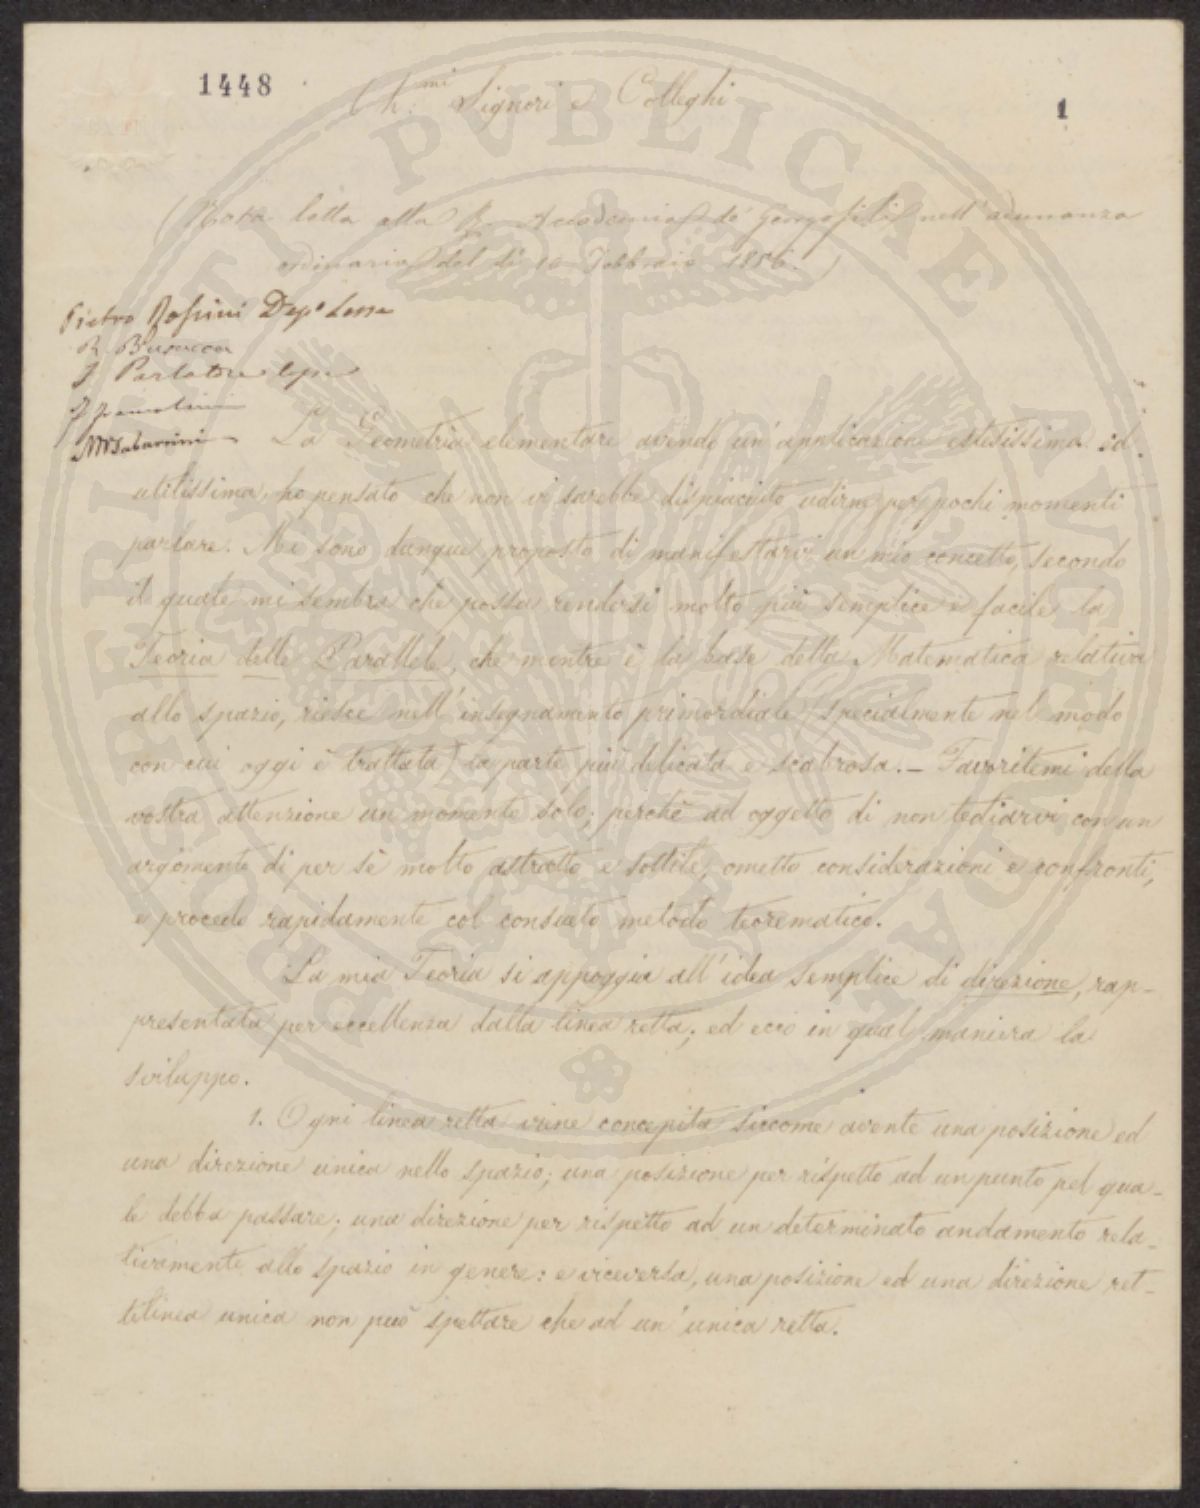 1448
1
Ch.mi Signori e Colleghi
(Nota letta alla R. Accademia de' Georgofili nell'adunanza
ordinaria del dì 10 Febbraio 1856.)
Pietro
R.
P. Parlatore
La Geometria elementare avendo un'applicazione estesissima ed
utilissima, ho pensato che non vi sarebbe dispiaciuto udirne per pochi momenti
parlare. Mi sono dunque proposto di manifestarvi un mio concetto, secondo
il quale mi sembra che possa rendersi molto più semplice e facile la
Teoria delle Parallele, che mentre è la base della Matematica relativa
allo spazio, riesce nell'insegnamento primordiale (specialmente nel modo
con cui oggi è trattata) la parte più delicata e scabrosa. – Favoritemi della
vostra attenzione un momento solo; perchè ad oggetto di non tediarvi con un
argomento di per sè molto astratto e sottile, ometto considerazioni e confronti,
e procedo rapidamente col consueto metodo teorematico.
La mia Teoria si appoggia all'idea semplice di direzione, rap-
presentata per eccellenza dalla linea retta; ed ecco in qual maniera la
sviluppo.
1. Ogni linea retta viene concepita siccome avente una posizione ed
una direzione unica nello spazio; una posizione per rispetto ad un punto pel qua-
le debba passare; una direzione per rispetto ad un determinato andamento rela-
tivamente allo spazio in genere: e viceversa, una posizione ed una direzione ret-
tilinea unica non può spettare che ad un'unica retta.
PUBLICAE